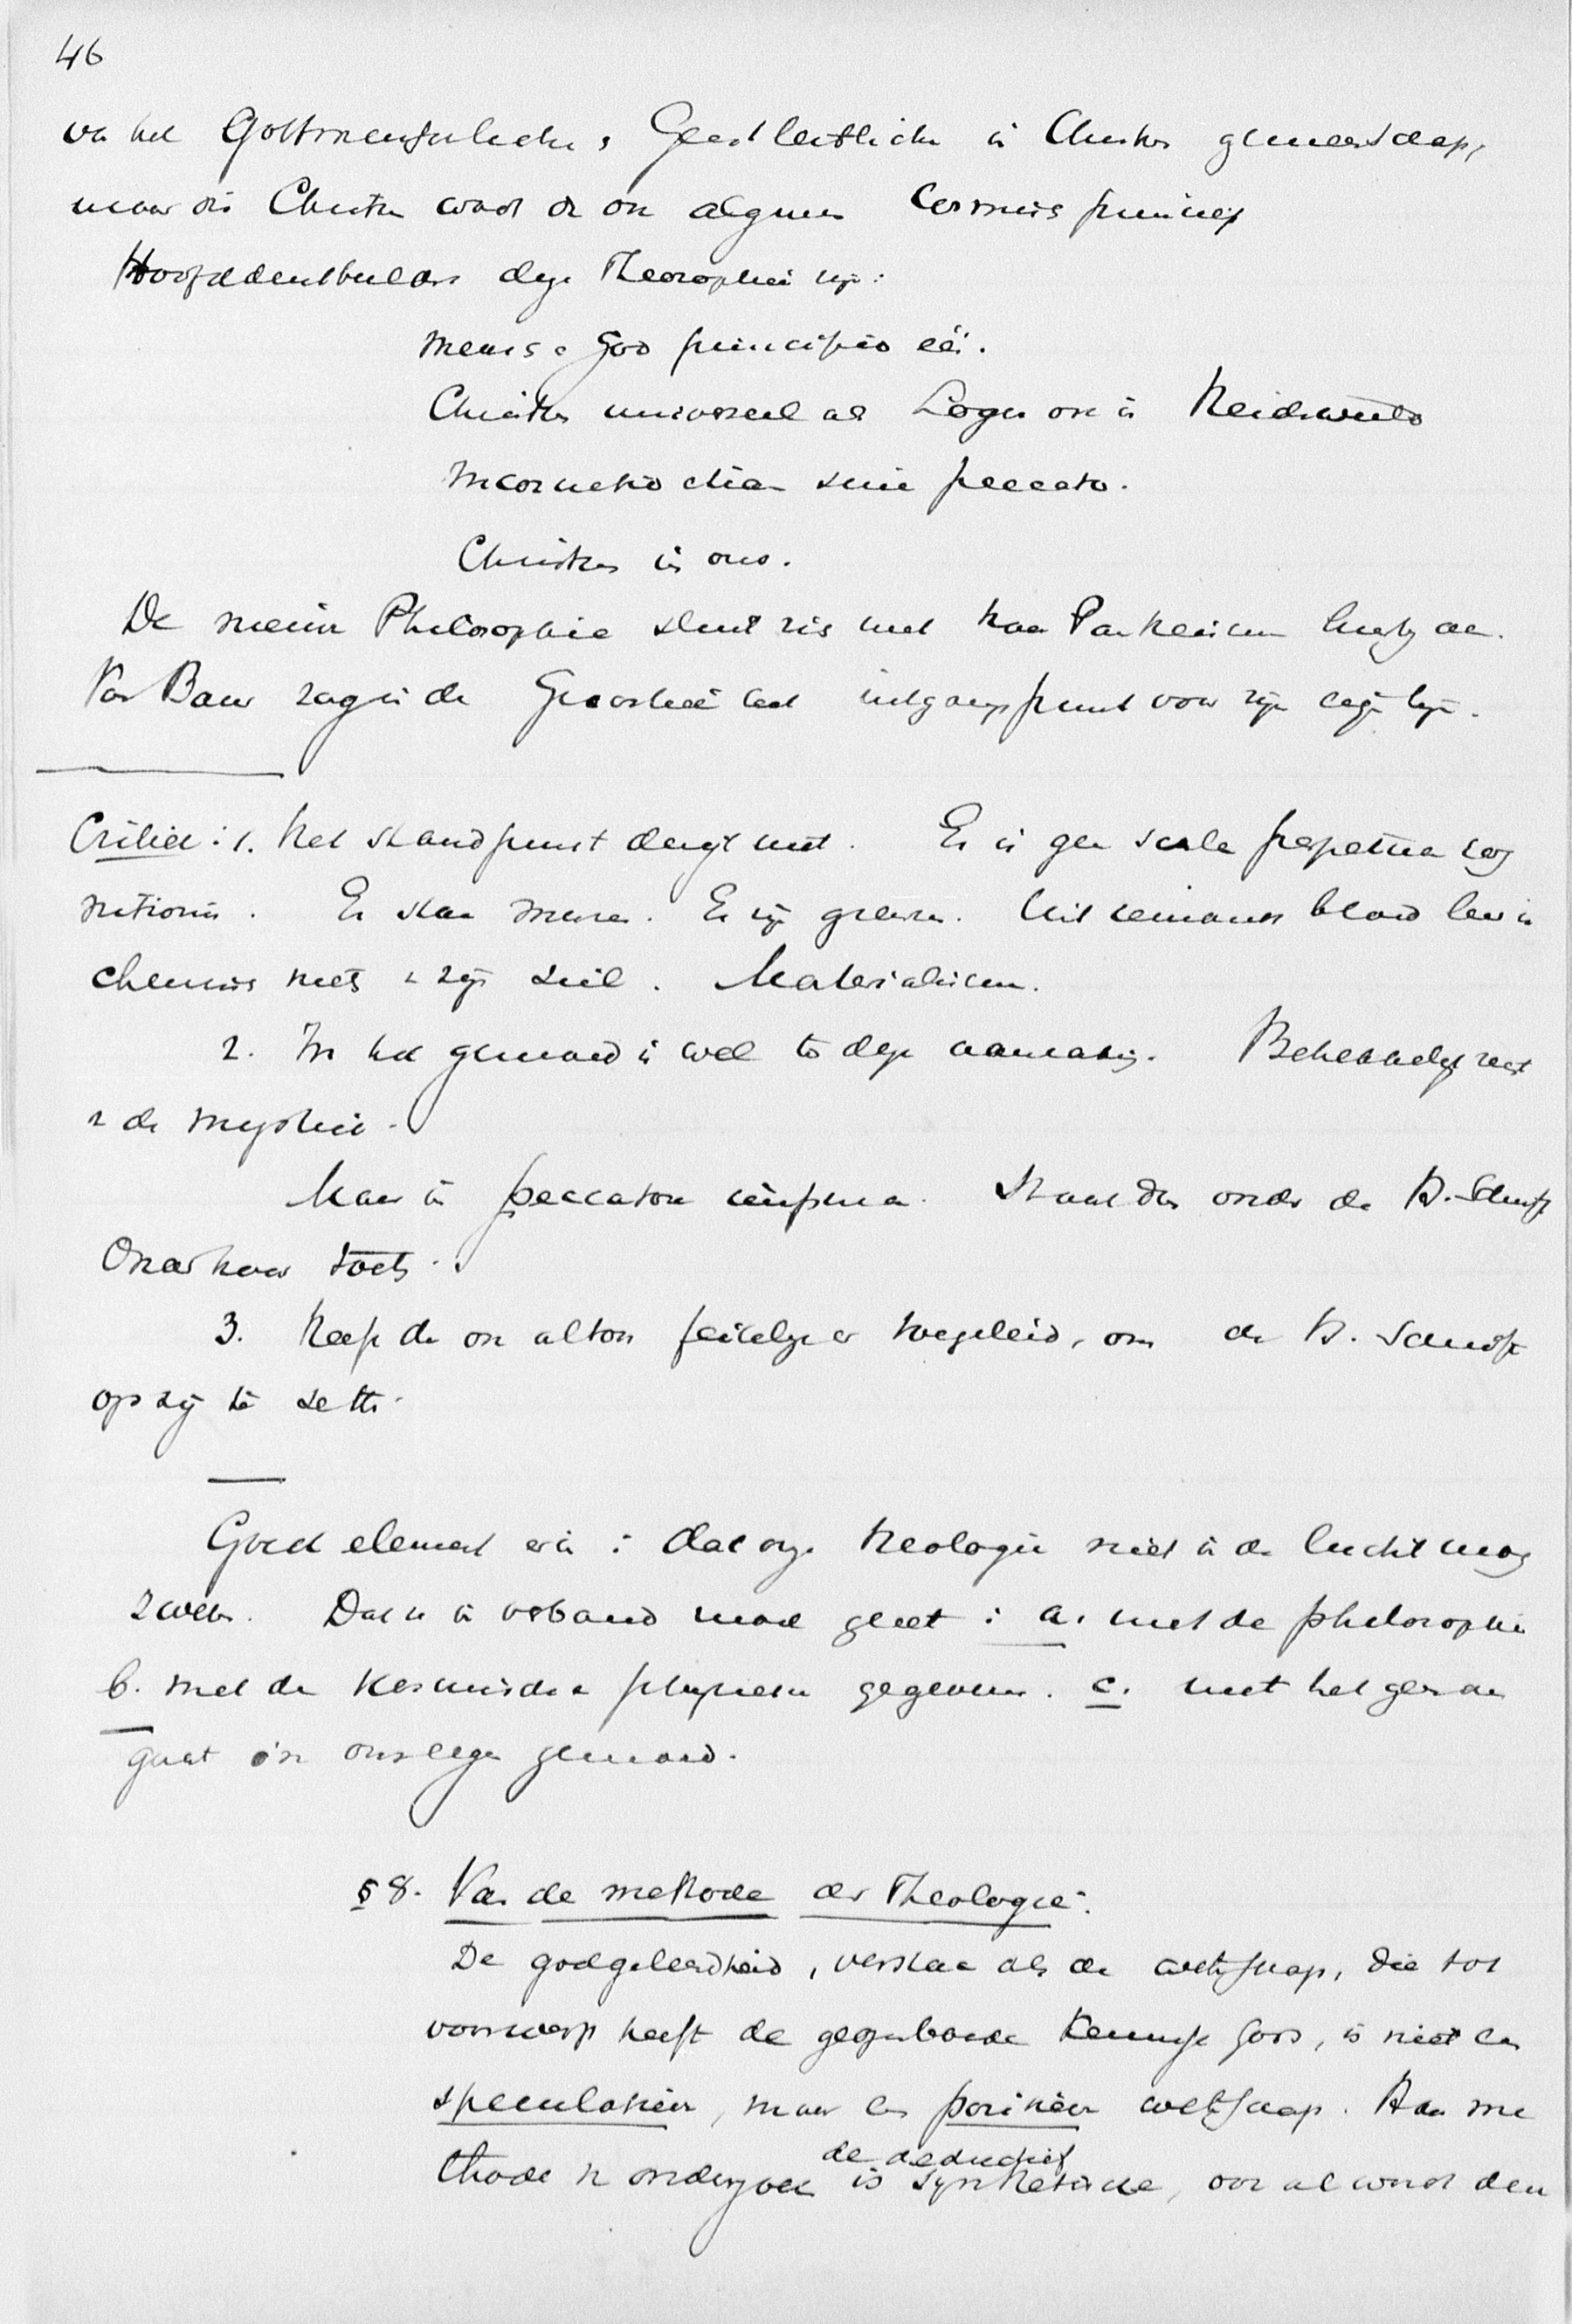 46
van het Gottmenschlichen, Geestleiblichen in Christus gemeenschap,
maar dis Christus word dr on algemeen Cosmisch principe
Hoofddenkbeelden dezer Theosophie zijn:
Mensch & God principieel één.
Christus universeel als Logos ook in Heidenwereld
Incarnatio etiam sine peccato.
Christus in ons.
De nieuwe Philosophie sluit zich met haar Pantheisme hierbij aan.
Von Baur zag in de Gnostiek het uitgangspunt voor zijn eigen lijn.
Critiek: 1. Het standpunt deugt niet. Er is geen scala perpetua cog
nitionis. Er staan muren. Er zijn grenzen. Uit iemands bloed leer ik
chemisch niets v zijn ziel. Materialisme.
2. In het gemoed is wel te dege aanraking. Betrekkelijk recht
v de mystiek.
Maar is peccatore impura. Staat dus onder de H. Schrift
Onzerhaar toets.
3. Heeft dan ook altoos feitelijk er toegeleid, om de H. Schrift
op zij te zetten.
Goed element erin: dat onze theologie niet in de lucht mag
zweven. Dat ze in verband moet gezet: a. met de philosophie
b. met de kosmische & physische gegevens. c. met hetgeen om
gaat in ons eigen gemoed.
§ 8. Van de methode der Theologie.
De godgeleerdheid, verstaan als de wetenschap, die tot
voorwerp heeft de geopenbaarde Kennisse Gods, is niet een
speculatieve, maar een positieve wetenschap. Haar me
thode v onderzoek is de deductief synthetische, ook al wordt den